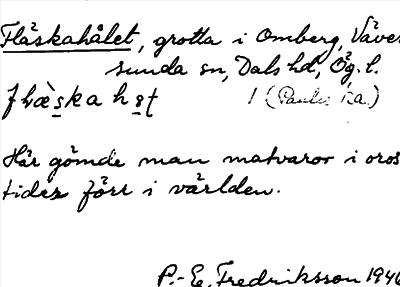 Fläskahålet, grotta i Omberg, Väver
sunda sn, Dals hd, Ög. l.
flæ̀ska h
Här gömde man matvaror i oros
tider förr i världen.
P.-E. Fredriksson 1946